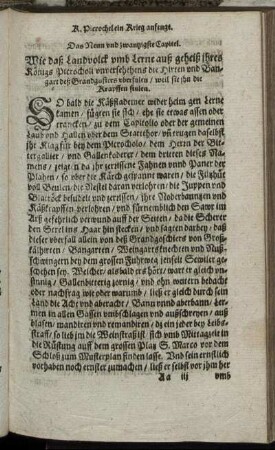 K. Picrochel ein Krieg anfengt.
Das Neun und zwantzigste Capitel.
Wie daß Landvolck vmb Lerne auß geheiß jhres
Königs Picrocholl vnversehehens die Hirten vnd Ban-
gart deß Grandgusiers vberfielen / weil sie jhn die
fielen.
SO bald die Käßflademer wider heim gen Lerne
kamen / fügten sie sich / ehe sie etwas assen oder
trancken / zu dem Capitolio oder der gemeinen
Laub vnd Hallen oder dem vñ trugen daselbst
jhr Klag für bey dem Picrocholo / dem Herrn der Bit-
tergallier / vnd Gallenkoderer / dem dritten dieses Na-
mens / zeigten da jhr zerrissen Fahnen vnnd Paner der
Plahen / so vber die Kärch gespannt waren / die
voll Beulen / die Nestel daran verlohren / die Juppen vnd
besudelt vnd zerrissen / jhre vnd
Käßkrappffen verlohren / vnd fürnemblich den
Arß gefehrlich verwund auff der Seiten / da die Scherer
den Strel ins Haar hin stecken / vnd sagten darbey / daß
dieser vberfall allein von deß Grandgoschiers von Groß-
kälhirten / Bangarten / Weingartsknechten vnd Nuß-
schwingern bey dem grossen Fuhrweg jenseit Sewiler ge-
schehen sey. Welcher / als bald ers hört / wart er gleich vn-
sinnig / Gallenbitterig zornig / vnd ohn weitern bedacht
oder nachfrag wie oder warumb / ließ er gleich durch sein
Land die Acht vnd aberacht / Bann vnnd aberbann / Ler-
men in allen Gassen vmbschlagen vnd außschreyen / auß
blasen / vnd / dz ein jeder bey Leibs-
straff / so lieb jm die Weinstraß ist / sich vmb Mittagzeit in
die Rüstung auff dem grossen Platz S. Marco vor dem
Schloß zum Musterplan finden lasse. Vnd sein ernstlich
vorhaben noch ernster zumachen / ließ er selbst vor jhm her
Aa iij vmb